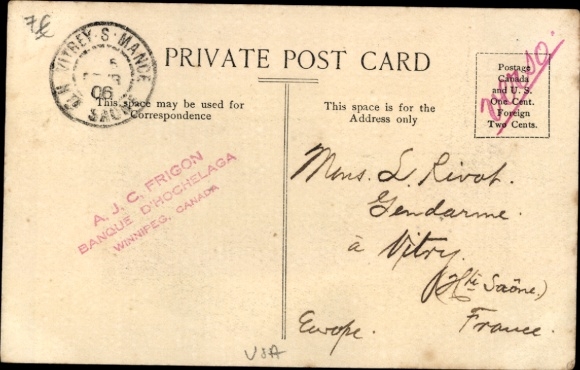 7€
VITREY-S-MANCE
06
SAÔNE
PRIVATE POST CARD
This space may be used for
Correspondence
This space is for the
Address only
Postage
Canada
and U. S.
One Cent.
Foreign
Two Cents.
A. J. C. FRIGON
BANQUE D'HOCHELAGA
WINNIPEG, CANADA
Mons. L. Rivot.
Gendarme.
à Vitry.
(Hte Saône.)
Europe. France.
USA